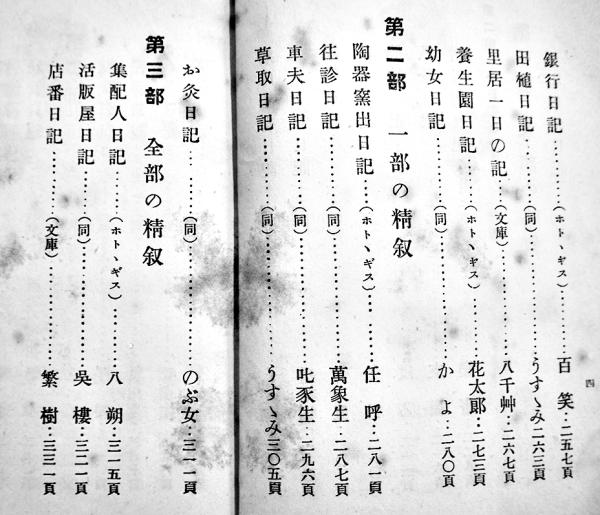 銀行日記………(ホトヽギス)………百笑‥二五七頁
田植日記………(同)………うすゝみ二六三頁
里居一日の記………(文庫)………八千艸‥二六七頁
養生園日記………(ホトヽギス)………花太郎‥二七三頁
幼女日記………(同)………かよ‥二八〇頁
第二部 一部の精叙
陶器窯出日記………(ホトヽギス)………任呼‥二八一頁
往診日記………(同)………萬象生‥二八七頁
車夫日記………(同)………叱豕生‥二九六頁
草取日記………(同)………うすゝみ三〇五頁
お灸日記………(同)………のぶ女‥三一一頁
第三部 全部の精叙
集配人日記………(ホトヽギス)………八朔‥三一五頁
活版屋日記………(同)………吳樓‥三二一頁
店番日記………(文庫)………繁樹‥三三一頁
四